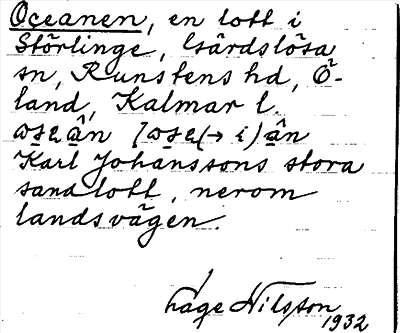 Oceanen, en lott i
Störlinge, Gärdslösa
sn, Runstens hd, Ö-
land, Kalmar l.
Karl Johanssons stora
sandlott, nerom
landsvägen.
Åage Nilsson
1932